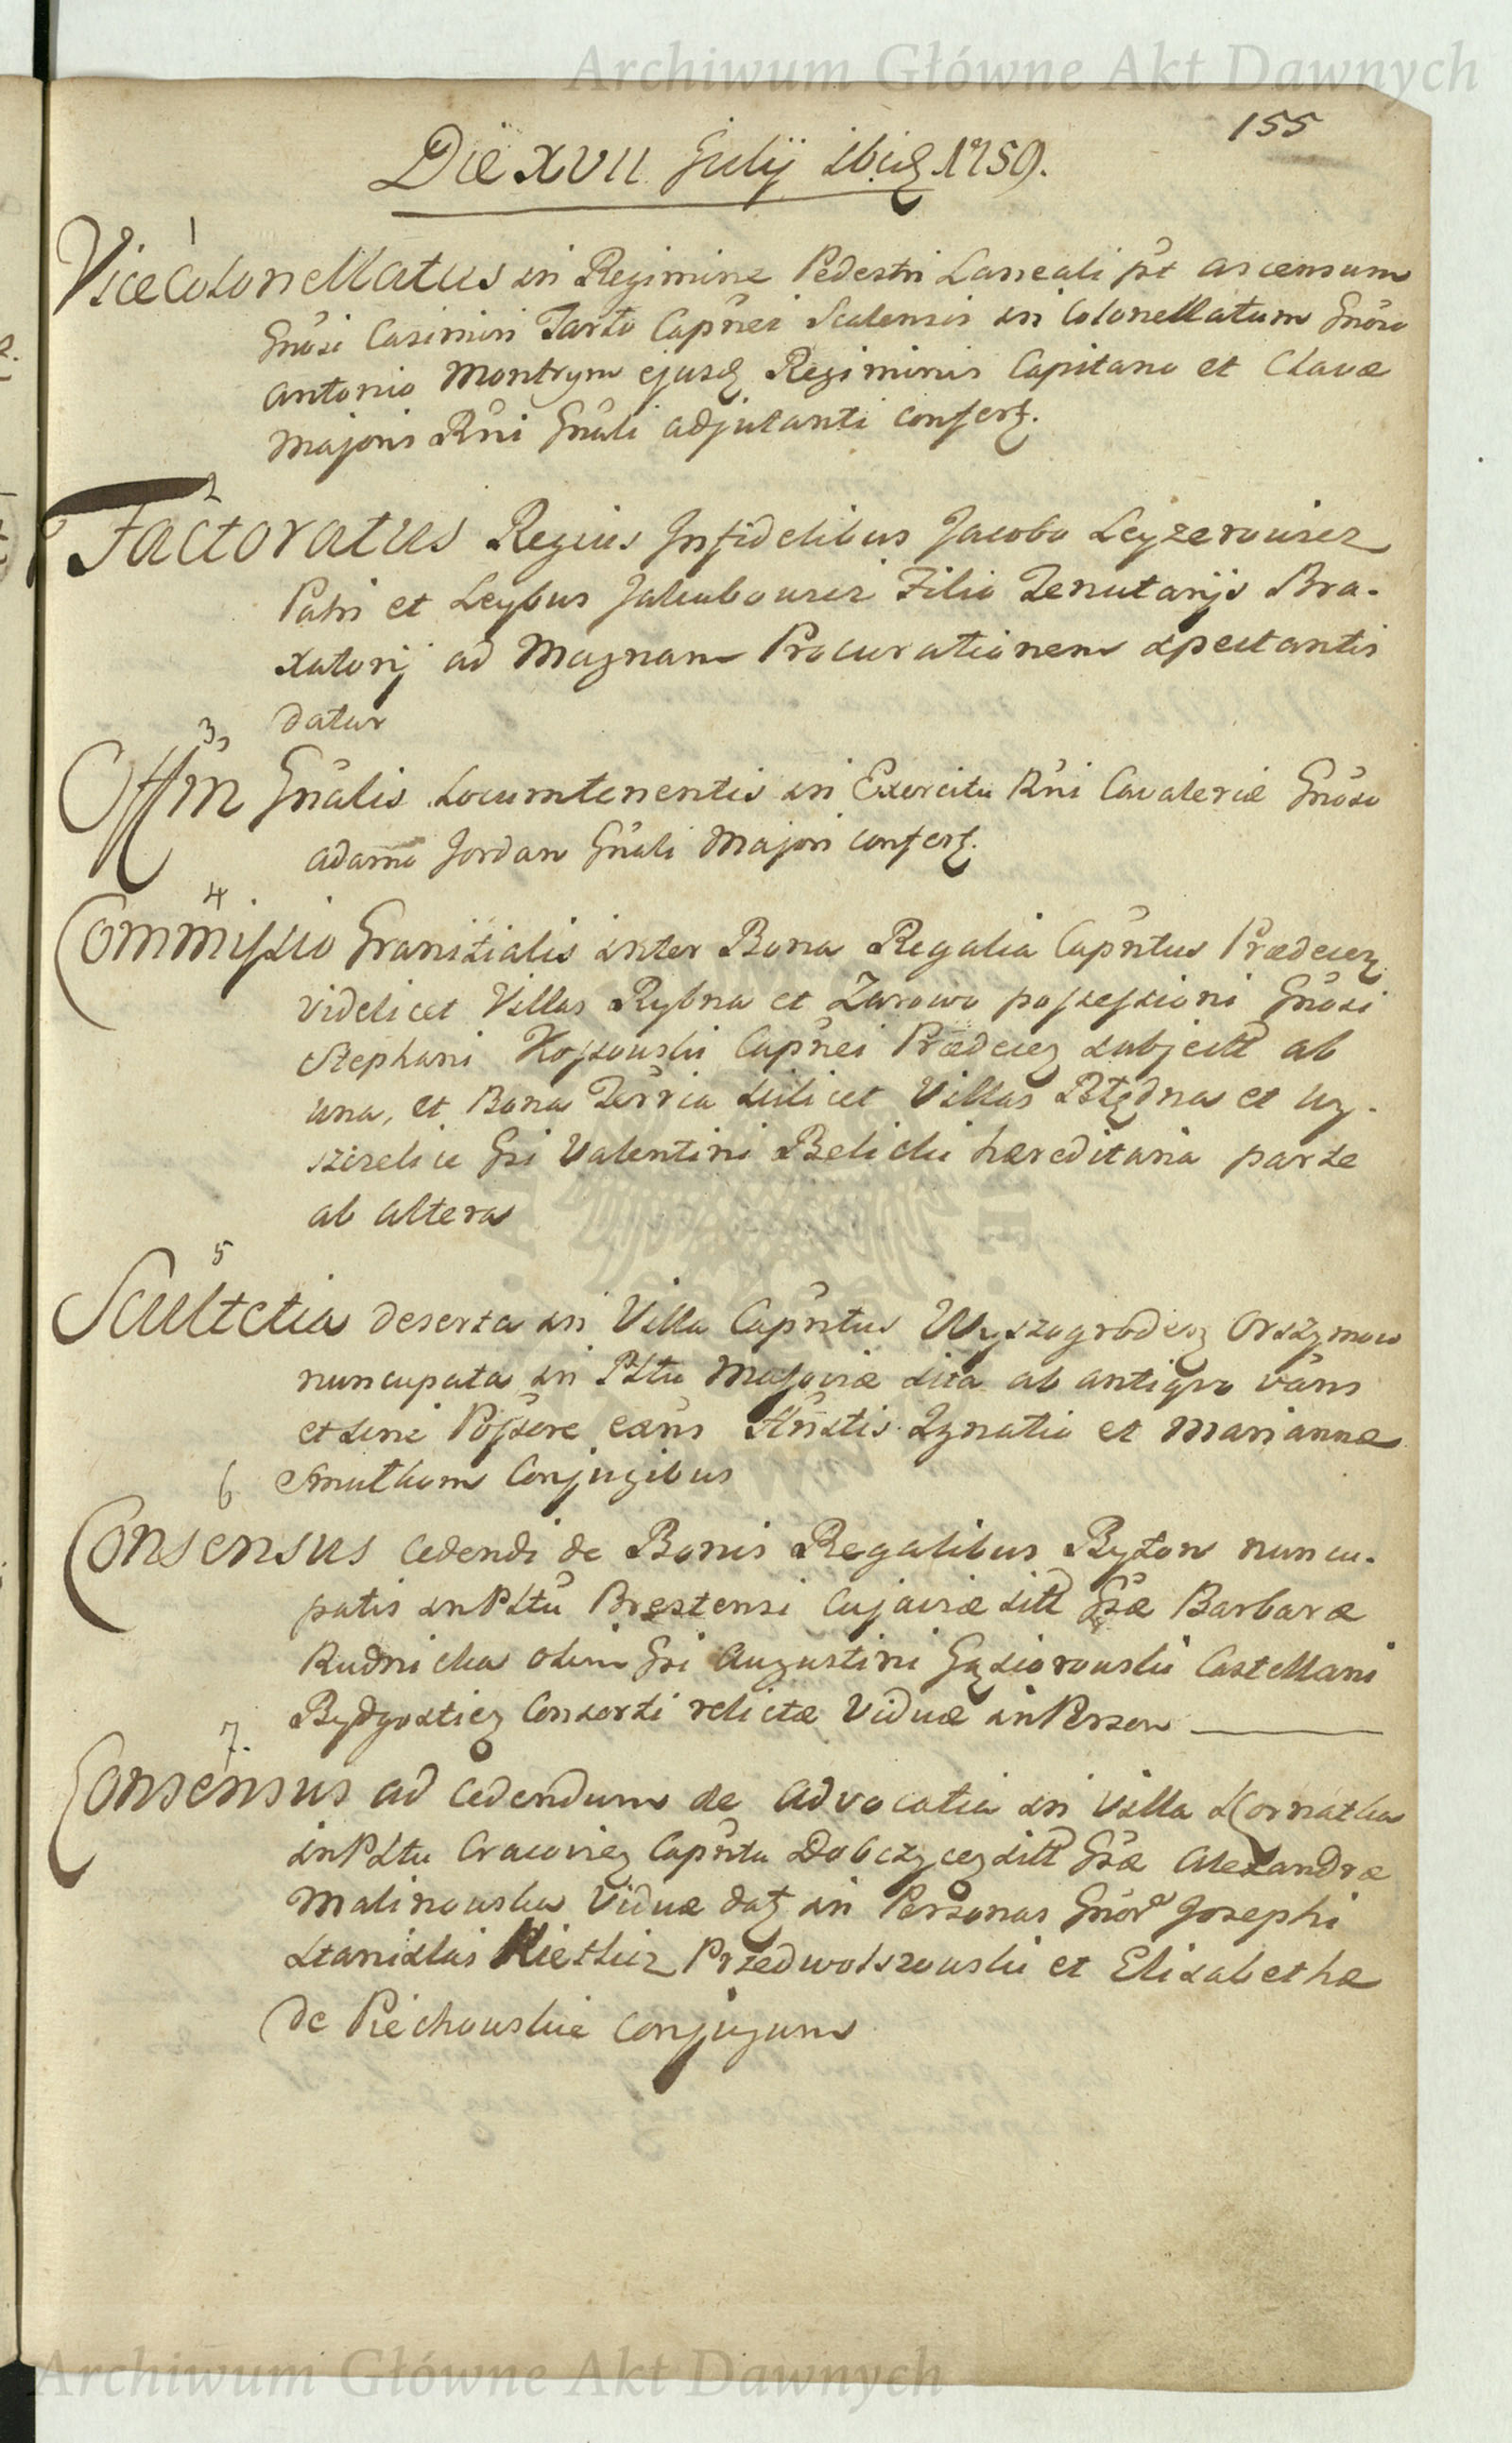 Archiwum Główne Akt Dawnych
155
Die XVII Julij 1759.
1
ViceColonellatus in Regimine Pedestri Laneali pt ascensum
Gnosi Casimiri Tarło Capnei Scalensis in Colonellatum Gnoso
Antonio Montrym ejusq Regiminis Capitano et Clavæ
Majoris Rni Gnali adjutanti confertz.
2
Factoratus Regius Infidelibus Jacobo Leyzerowicz
Patri et Leybus Jakubowicz Filio Tenutarijs Bra-
xatorij ad Magnam Procurationem spectantis
datur
3
Offm Gnalis Locumtenentis in Exercitu Rni Cavaleriæ Gnoso
Adamo Jordan Gnali Majori confertz.
4
Commissio Granitialis inter Bona Regalia Capntus Prædecez
videlicet Villas Rybna et Zurowo possessioni Gnosi
Stephani Kossowski Capnei Prædecez subjectt ab
una, et Bona Terria scilicet Villas Błędna et
Gsi Valentini Bielicki hæreditaria parte
ab altera
5
Scultetia deserta in Villa Capntus Wyszogrodez Orszymowo
nuncupata in Pltu Masoviæ sita ab antiquo vans
et sine Possore exns Hnstis Ignatio et Mariannæ
Conjugibus
6
Consensus cedendi de Bonis Regalibus Byton nuncu-
patis in Pltu Brestensi Cujaviæ sitt Gsæ Barbaræ
Rudnicka olim Gsi Augustini Gąsiorowski Castellani
Bydgosticz Consorti relictæ Viduæ in Person
7.
Consensus ad cedendum de Advocatia in Villa Kornatka
in Pltu Cracoviez Capntu Dobczycez sitt Gsæ Alexandræ
Malinowska Viduæ datz in Personas Gnor Josephi
Stanislai Kietlicz Przedwolszowski et Elisabethæ
de Piechowskie Conjugum
Archiwum Główne Akt Dawnych